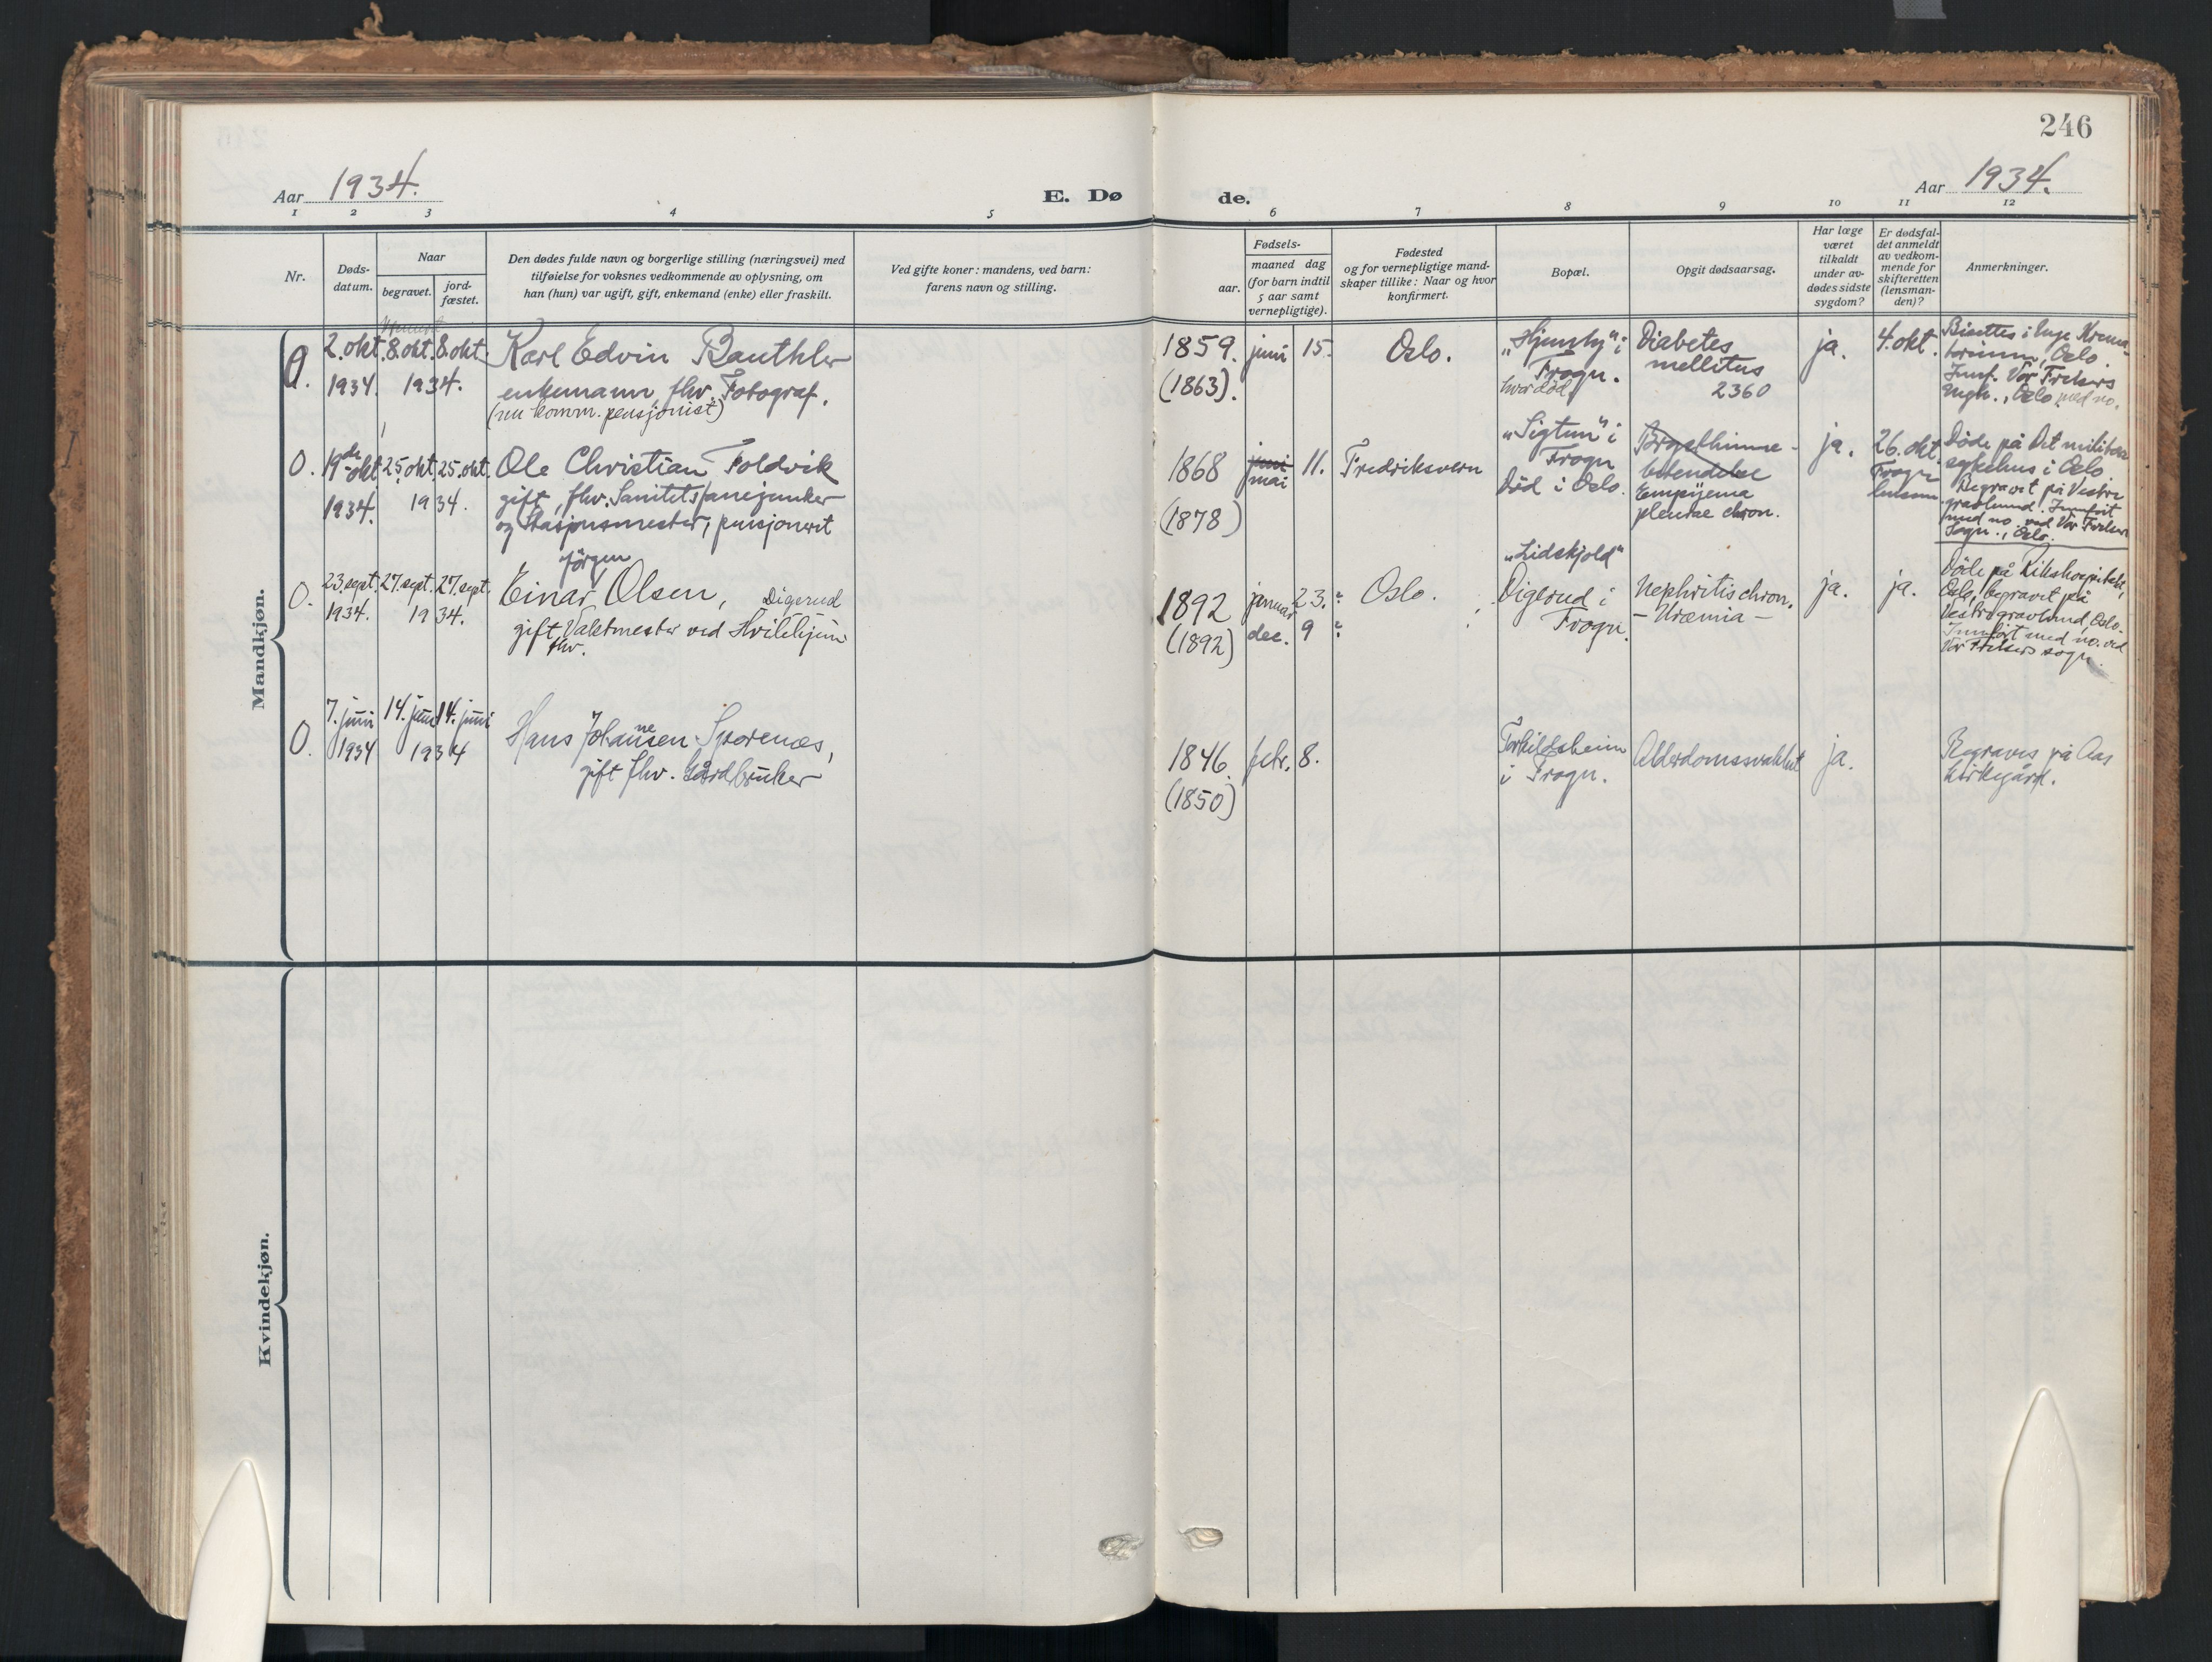 246
Aar 1934.
E. Dø
de.
Aar 1934.
1 2 3 4 5 6 7 8 9 10 11 12
Nr.
Døds-
datum.
Naar
begravet.
jord-
fæstet.
Den dødes fulde navn og borgerlige stilling (næringsvei) med
tilføielse for voksnes vedkommende av oplysning, om
han (hun) var ugift, gift, enkemand (enke) eller fraskilt.
Ved gifte koner: mandens, ved barn:
farens navn og stilling.
Fødsels-
aar.
maaned dag
(for barn indtil
5 aar samt
vernepligtige).
Fødested
og for vernepligtige mand-
skaper tillike: Naar og hvor
konfirmert.
Bopæl.
Opgit dødsaarsag.
Har læge
været
tilkaldt
under av-
dødes sidste
sygdom?
Er dødsfal-
det anmeldt
av vedkom-
mende for
skifteretten
(lensman-
den)?
Anmerkninger.
Mandkjøn.
0.
2. okt.
1934.
8. okt. 8. okt.
1934.
Karl Edvin Bauthler
enkemann, fhv. Fotograf.
(nu komm. pensjonist)
1859.
(1863).
juni 15.
Oslo.
"Hjemly" i
Frogn.
hvor død
Diabetes
mellitus
2360
ja.
4. okt.
Bisettes i krema-
torium, Oslo.
Innf. Vor Frelsers
Oslo med no.
0.
19de okt
1934.
25. okt. 25. okt.
1934.
Ole Christian Foldvik
gift, fhv. Sanitetsfanejunker
og Stasjonsmester, pensjonert
1868
(1878)
juni
mai
11.
Fredriksvern
"Sigtun" i
Frogn
Død i Oslo.
Brysthinne-
betendelse
Empyema
pleurae chron.
ja.
26. okt.
Frogn
lensm.
Døde på Det militære
sykehus i Oslo
Begravet på Vestre
gravlund. Innført
med no. ved Vor Frelsers
Sogn., Oslo.
0.
23. sept.
1934.
27. sept. 27. sept.
1934.
Jörgen
Einar Olsen, Digerud
gift, Vaktmester ved Hvilehjem
fhv.
1892
(1892)
januar 23. ?
dec. 9 ?
Oslo.
"Lidskjold"
Digerud i
Frogn.
Nephritis chron.
- Uræmia -
ja.
ja.
Døde på Rikshospitalet,
Oslo, begravet på
Vestre gravlund, Oslo.
Innført med no. ved
Vor Frelsers sogn.
0.
7. juni
1934
14. juni 14. juni
1934
Hans Johannesen Sporenæs,
gift fhv. Gårdbruker
1846.
(1850)
febr. 8.
Torkildsheim
i Frogn.
Alderdomssvakhet
ja.
Begraves på Aas
kirkegård.
Kvindekjøn.